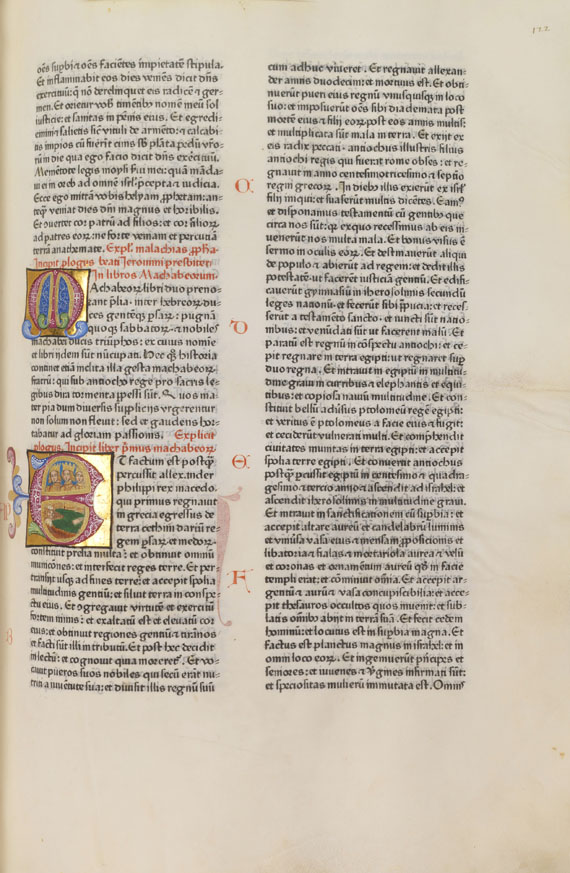 122
oēs supbi ⁊ oēs facientes impietatē stipula.
Et inflammabit eos dies veniēs dicit dn̄s
exercituū: q̄ nō derelinquet eis radicē ⁊ ger-
men. Et orietur vob timentib᷒ nomē meū sol
iusticie: et sanitas in pēnis eius. Et egredi-
emini ⁊ salietis sic̄ vituli de armēto: ⁊ calcabi-
tis impios cū fuerīt cinis sb᷒ plāta pedū vr̄o-
rū in die qua ego facio dicit dn̄s exercituū.
Mementote legis moysi ẜui mei: quā māda-
ui ei in oreb ad omnē isrl̄ p̄cepta ⁊ iudicia.
Ecce ego mittā vobis helyam ꝓphetam: an-
teq̄ veniat dies dn̄i magnus et horribilis.
Et cōuertet cor patrū ad filios: et cor filiorꝝ
ad patres eorꝝ: ne forte veniam et percutiā
terrā anathemate. Expl. malachias ꝓpha.
Incipit plogus beati Jeronimi presbiteri
In libros Machabeorum.
Achabeorū libri duo preno-
tant plia . inter hebreorū du-
ces gentēq ꝑsarꝝ: pugnā
quoq sabbatorꝫ ⁊ nobiles
machabei ducis triūphos: ex cuius nomie
et libri ijdem sūt nūcupati. Hec q̄ historia
continet etiā inclita illa gesta machabeorꝝ
fratrū: qui sub antiocho rege pro sacris le-
gibus dira tormenta ꝑpessi sūt. Quos ma-
ter pia dum diuersis supplicijs vrgerentur
non solum non fleuit: sed et gaudens hor-
tabatur ad gloriam passionis. Explicit
plogus. Incipit liber p̄mus machabeorꝝ
T factum est postq̄
percussit allexander
philippi rex macedo.
qui primus regnauit
in grecia egressus de
terra cethim dariū re-
gem ꝑsarꝝ et medorꝝ.
constituit prelia multa: et obtinuit omniū
munitiones: et interfecit reges terre. Et per-
transijt usq ad fines terre: et accepit spolia
multitudinis gentiū: et siluit terra in conspe-
ctu eius. Et ꝯgregauit virtutē et exercitū
fortem nimis: et exaltatū est et eleuatū cor
eius: et obtinuit regiones gentiū ⁊ tirānos
et facti sūt illi in tributū. Et post hec decidit
in lectū: et cognouit quia moreret᷑. Et vo-
cauit pueros suos nobiles qui secū erāt nu-
triti a iuuentute sua: et diuisit illis regnū suū
cum adhuc viueret. Et regnauit allexan-
der annis duodecim: et mortuus est. Et obti-
nuerūt pueri eius regnū vnusquisq in loco
suo: et imposuerūt oēs sibi diademata post
mortē eius ⁊ filij eorꝝ post eos annis multis:
et multiplicata sūt mala in terra. Et exijt ex
eis radix peccati . antiochus illustris filius
antiochi regis qui fuerat rome obses: et re-
gnauit in anno centesimotricesimo ⁊ septīo
O:
regni grecorꝝ. In dieb᷒ illis exierūt ex isrl̄
filij iniqui: et suaserūt multis dicētes. Eam᷒
et disponamus testamentū cū gentib᷒ que
circa nos sūt: q̄ exquo recessimus ab eis in-
uenerūt nos multa mala. Et bonus visus ē
sermo in oculis eorꝝ. Et destinauerūt aliqui
de populo ⁊ abierūt ad regem: et dedit illis
potestatē ut facerēt iusticiā gentiū. Et edifi-
cauerūt gymnasiū in iherosolimis secundū
leges nationū: et fecerūt sibi p̄pucia: et reces-
serūt a testamēto sancto. et iuncti sūt natio-
D
nibus: et venūdati sūt ut facerent malū. Et
paratū est regnū in cōspectu antiochi: et ce-
pit regnare in terra egipti: ut regnaret sup
duo regna. Et intrauit in egiptū in multitu-
dine graui in curribus ⁊ elephantis et equi-
tibus: et copiosa nauiū multitudine. Et con-
stituit bellū aduersus ptolomeū regē egipti:
et veritus ē ptolomeus a facie eius ⁊ fugit:
et ceciderūt vulnerati multi. Et comprehendit
ciuitates munitas in terra egipti: et accepit
E:
spolia terre egipti. Et conuertit antiochus
postq̄ percussit egiptū in centesimo ⁊ quadra-
gesimo ⁊ tercio anno: ⁊ ascendit ad israhel: et
ascendit iherosolimis in multitudine graui.
Et intrauit in sanctificationem cū supbia: et
accepit altare aureū et candelabrū luminis
et vniūsa vasa eius ⁊ mensam ꝓposicionis et
libatoria: ⁊ fialas ⁊ mortariola aurea ⁊ velū
et coronas et ornamentū aureū qd᷒ in facie
F
templi erāt: et cōminuit omīa. Et accepit ar-
gentū ⁊ aurū ⁊ vasa concupiscibilia: et acce-
pit thesauros occultos quos inuenit: et sub-
latis omīb᷒ abijt in terrā suā. Et fecit cedem
hominū: et locutus est in supbia magna. Et
factus est planctus magnus in israhel: et in
omni loco eorꝝ. Et ingemuerūt p̄ncipes et
seniores: et iuuenes ⁊ v̄gines infirmati sūt:
et speciositas mulierū immutata est. Omīs
B